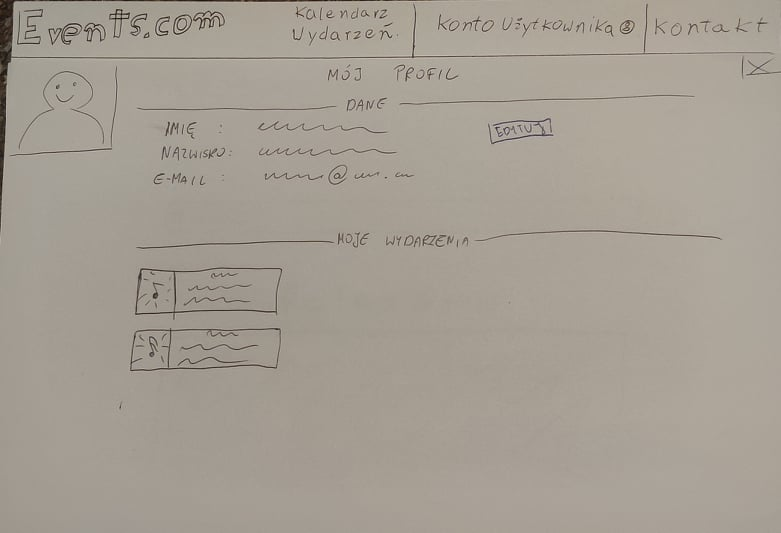 Events.com
Kalendarz
Wydarzeń.
Konto Użytkownika
Kontakt
MÓJ PROFIL
DANE
IMIĘ :
EDYTUJ
NAZWISKO:
E-MAIL : @ .
MOJE WYDARZENIA